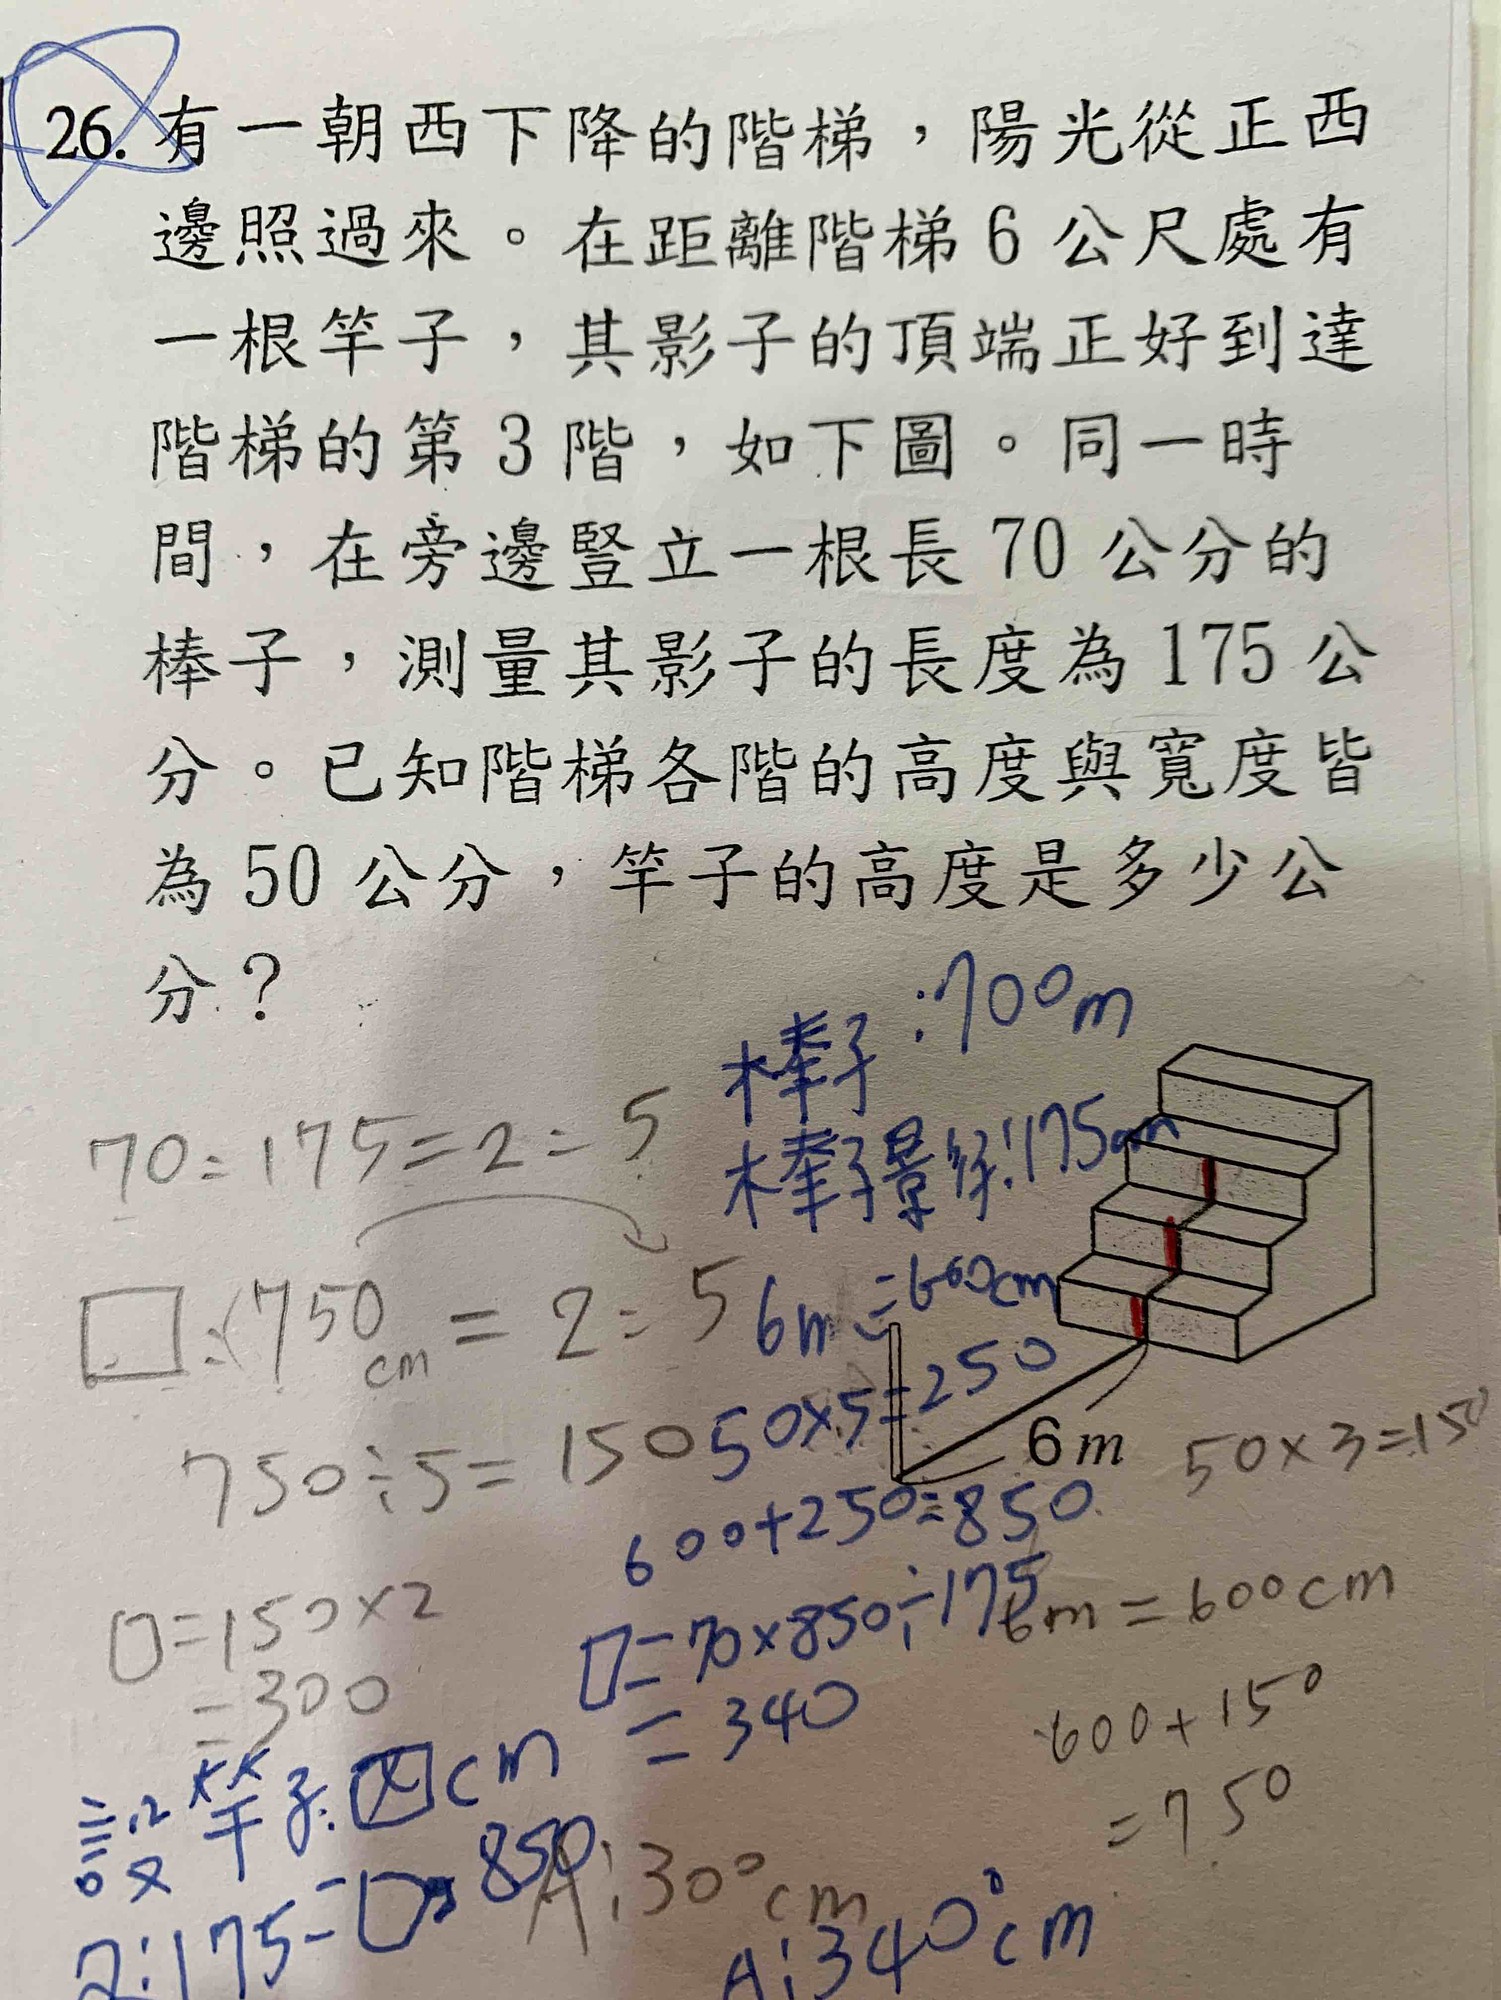 26. 有一朝西下降的階梯，陽光從正西
邊照過來。在距離階梯6公尺處有
一根竿子，其影子的頂端正好到達
階梯的第3階，如下圖。同一時
間，在旁邊豎立一根長70公分的
棒子，測量其影子的長度為175公
分。已知階梯各階的高度與寬度皆
為50公分，竿子的高度是多少公
分？
棒子：70cm
棒子影.:175cm
70:175=2:5
□:750cm=2:5
6m=600cm
50×5=250
750÷5=150
6m
50×3=150
600+250=850
□=150×2
=300
□=70×850÷175
=340
6m=600cm
600+150
=750
設竿子:□cm
2:175=□:850
A:300cm
A:340cm